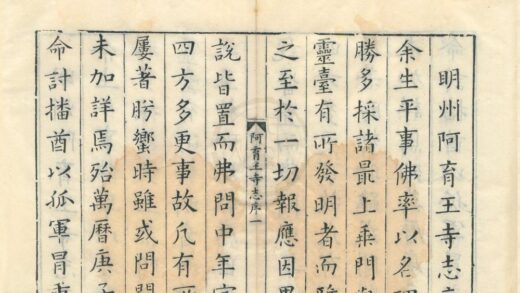 明州阿育王寺志
余生平事佛率以名
勝多採諸最上乘門
靈臺有所發明者而
之至於一切報應因
阿育王寺志序一
說皆置而弗問中年
四方多更事故凡有
屢著肹蠁時雖或問
未加詳焉殆萬曆庚子
命討播酋以孤軍冒